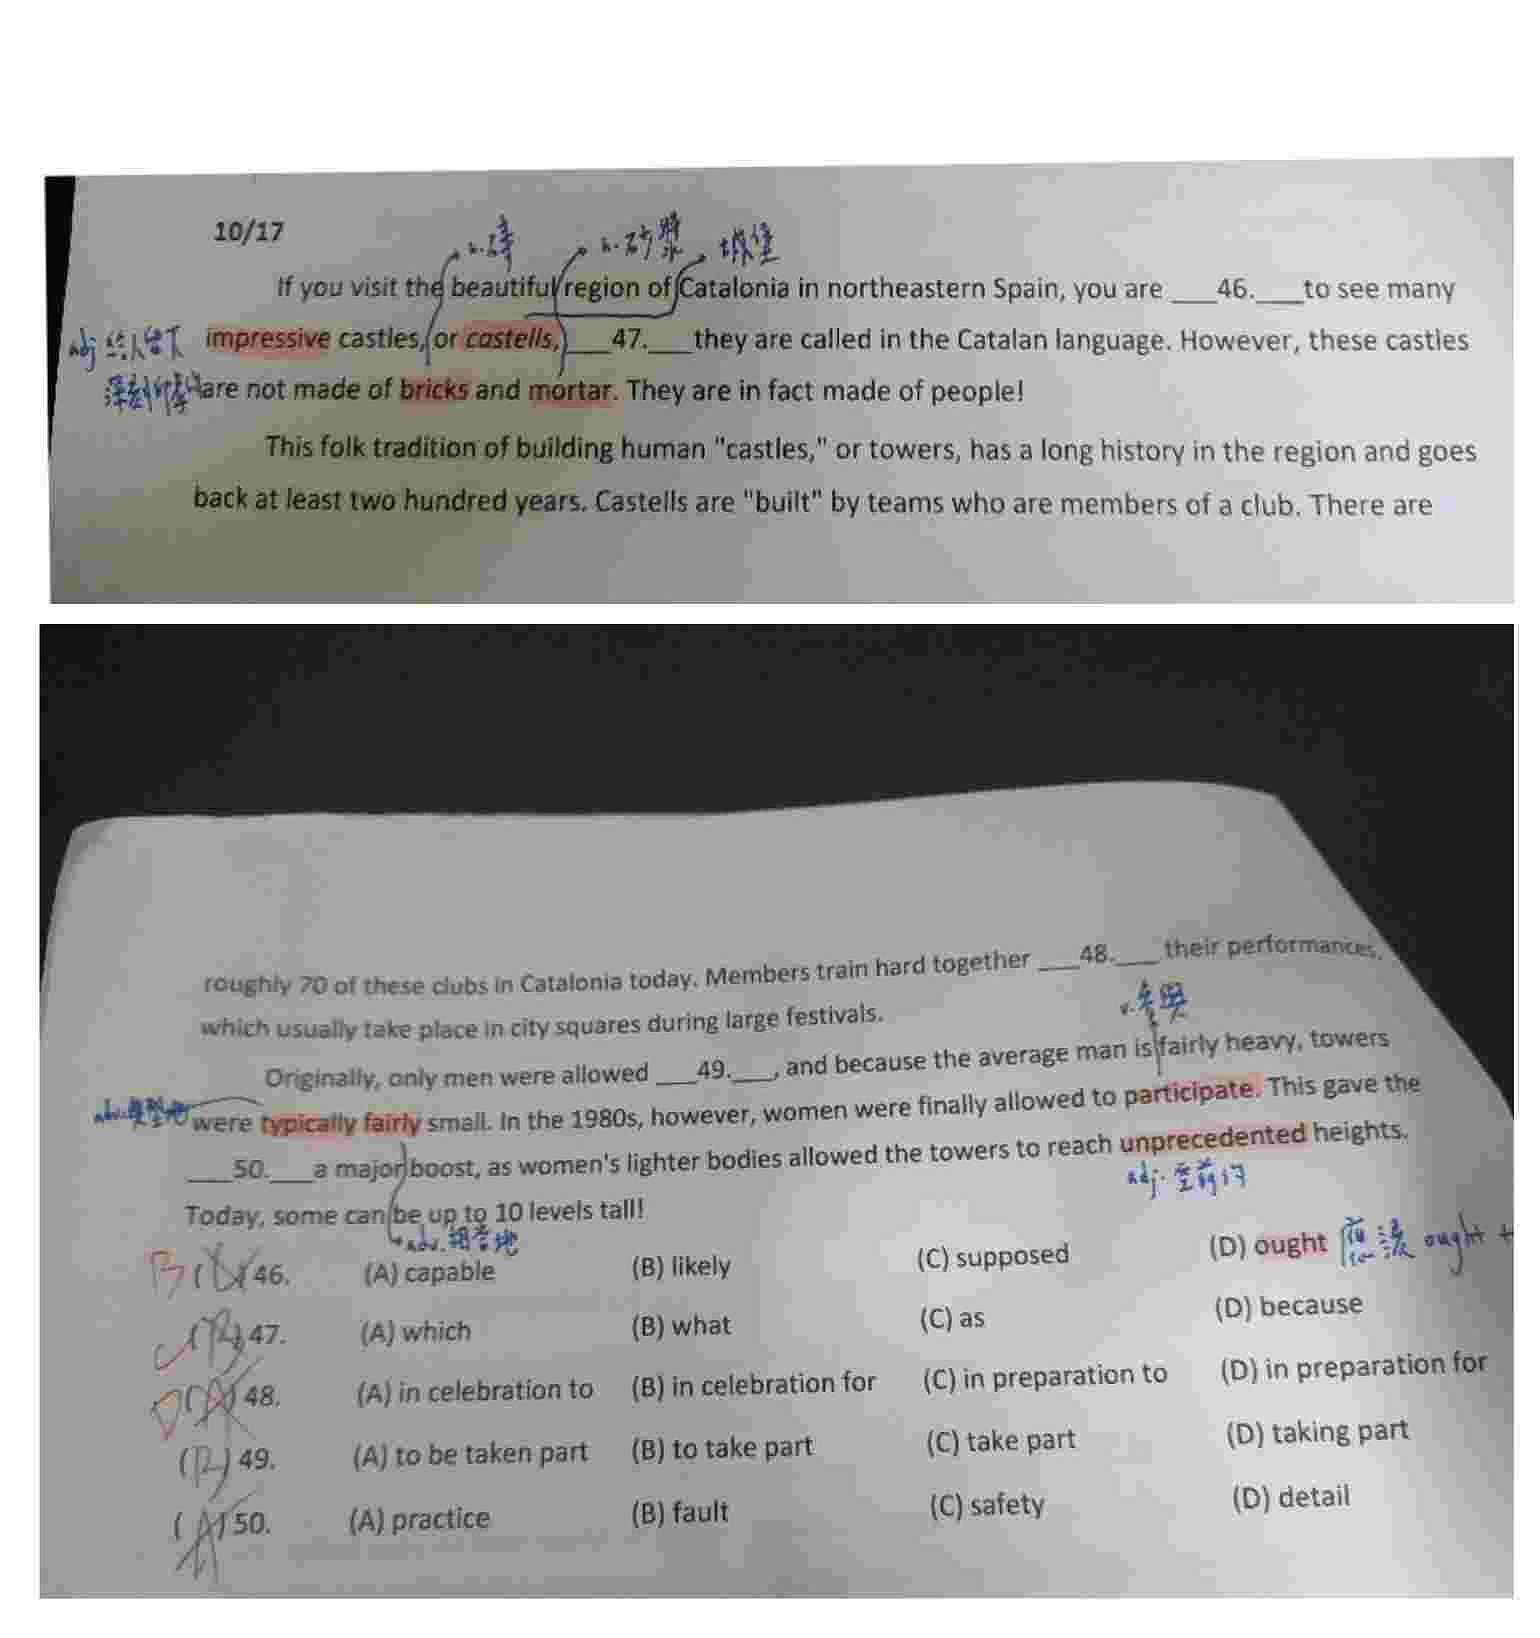 10/17
n.磚 n.砂漿 城堡
If you visit the beautiful region of Catalonia in northeastern Spain, you are ___46.___to see many
adj 給人留下 impressive castles, or castells, ___47.___ they are called in the Catalan language. However, these castles
深刻印象的 are not made of bricks and mortar. They are in fact made of people!
This folk tradition of building human "castles," or towers, has a long history in the region and goes
back at least two hundred years. Castells are "built" by teams who are members of a club. There are
roughly 70 of these clubs in Catalonia today. Members train hard together ___48.___ their performances,
which usually take place in city squares during large festivals.
v.參與
Originally, only men were allowed ___49.___, and because the average man is fairly heavy, towers
were typically fairly small. In the 1980s, however, women were finally allowed to participate. This gave the
___50.___a major boost, as women's lighter bodies allowed the towers to reach unprecedented heights.
adj.
Today, some can be up to 10 levels tall!
adv.相當地
B 46. (A) capable (B) likely (C) supposed (D) ought 應該 ought
47. (A) which (B) what (C) as (D) because
D (A) 48. (A) in celebration to (B) in celebration for (C) in preparation to (D) in preparation for
(B) 49. (A) to be taken part (B) to take part (C) take part (D) taking part
(A) 50. (A) practice (B) fault (C) safety (D) detail